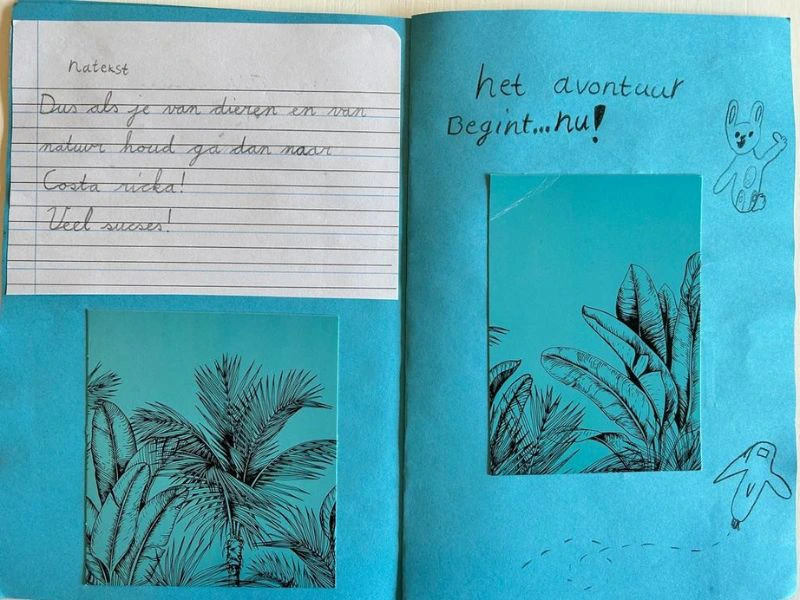 natekst
Dus als je van dieren en van
natuur houd ga dan naar
Costa ricka!
Veel sucses!
het avontuur
Begint...nu!